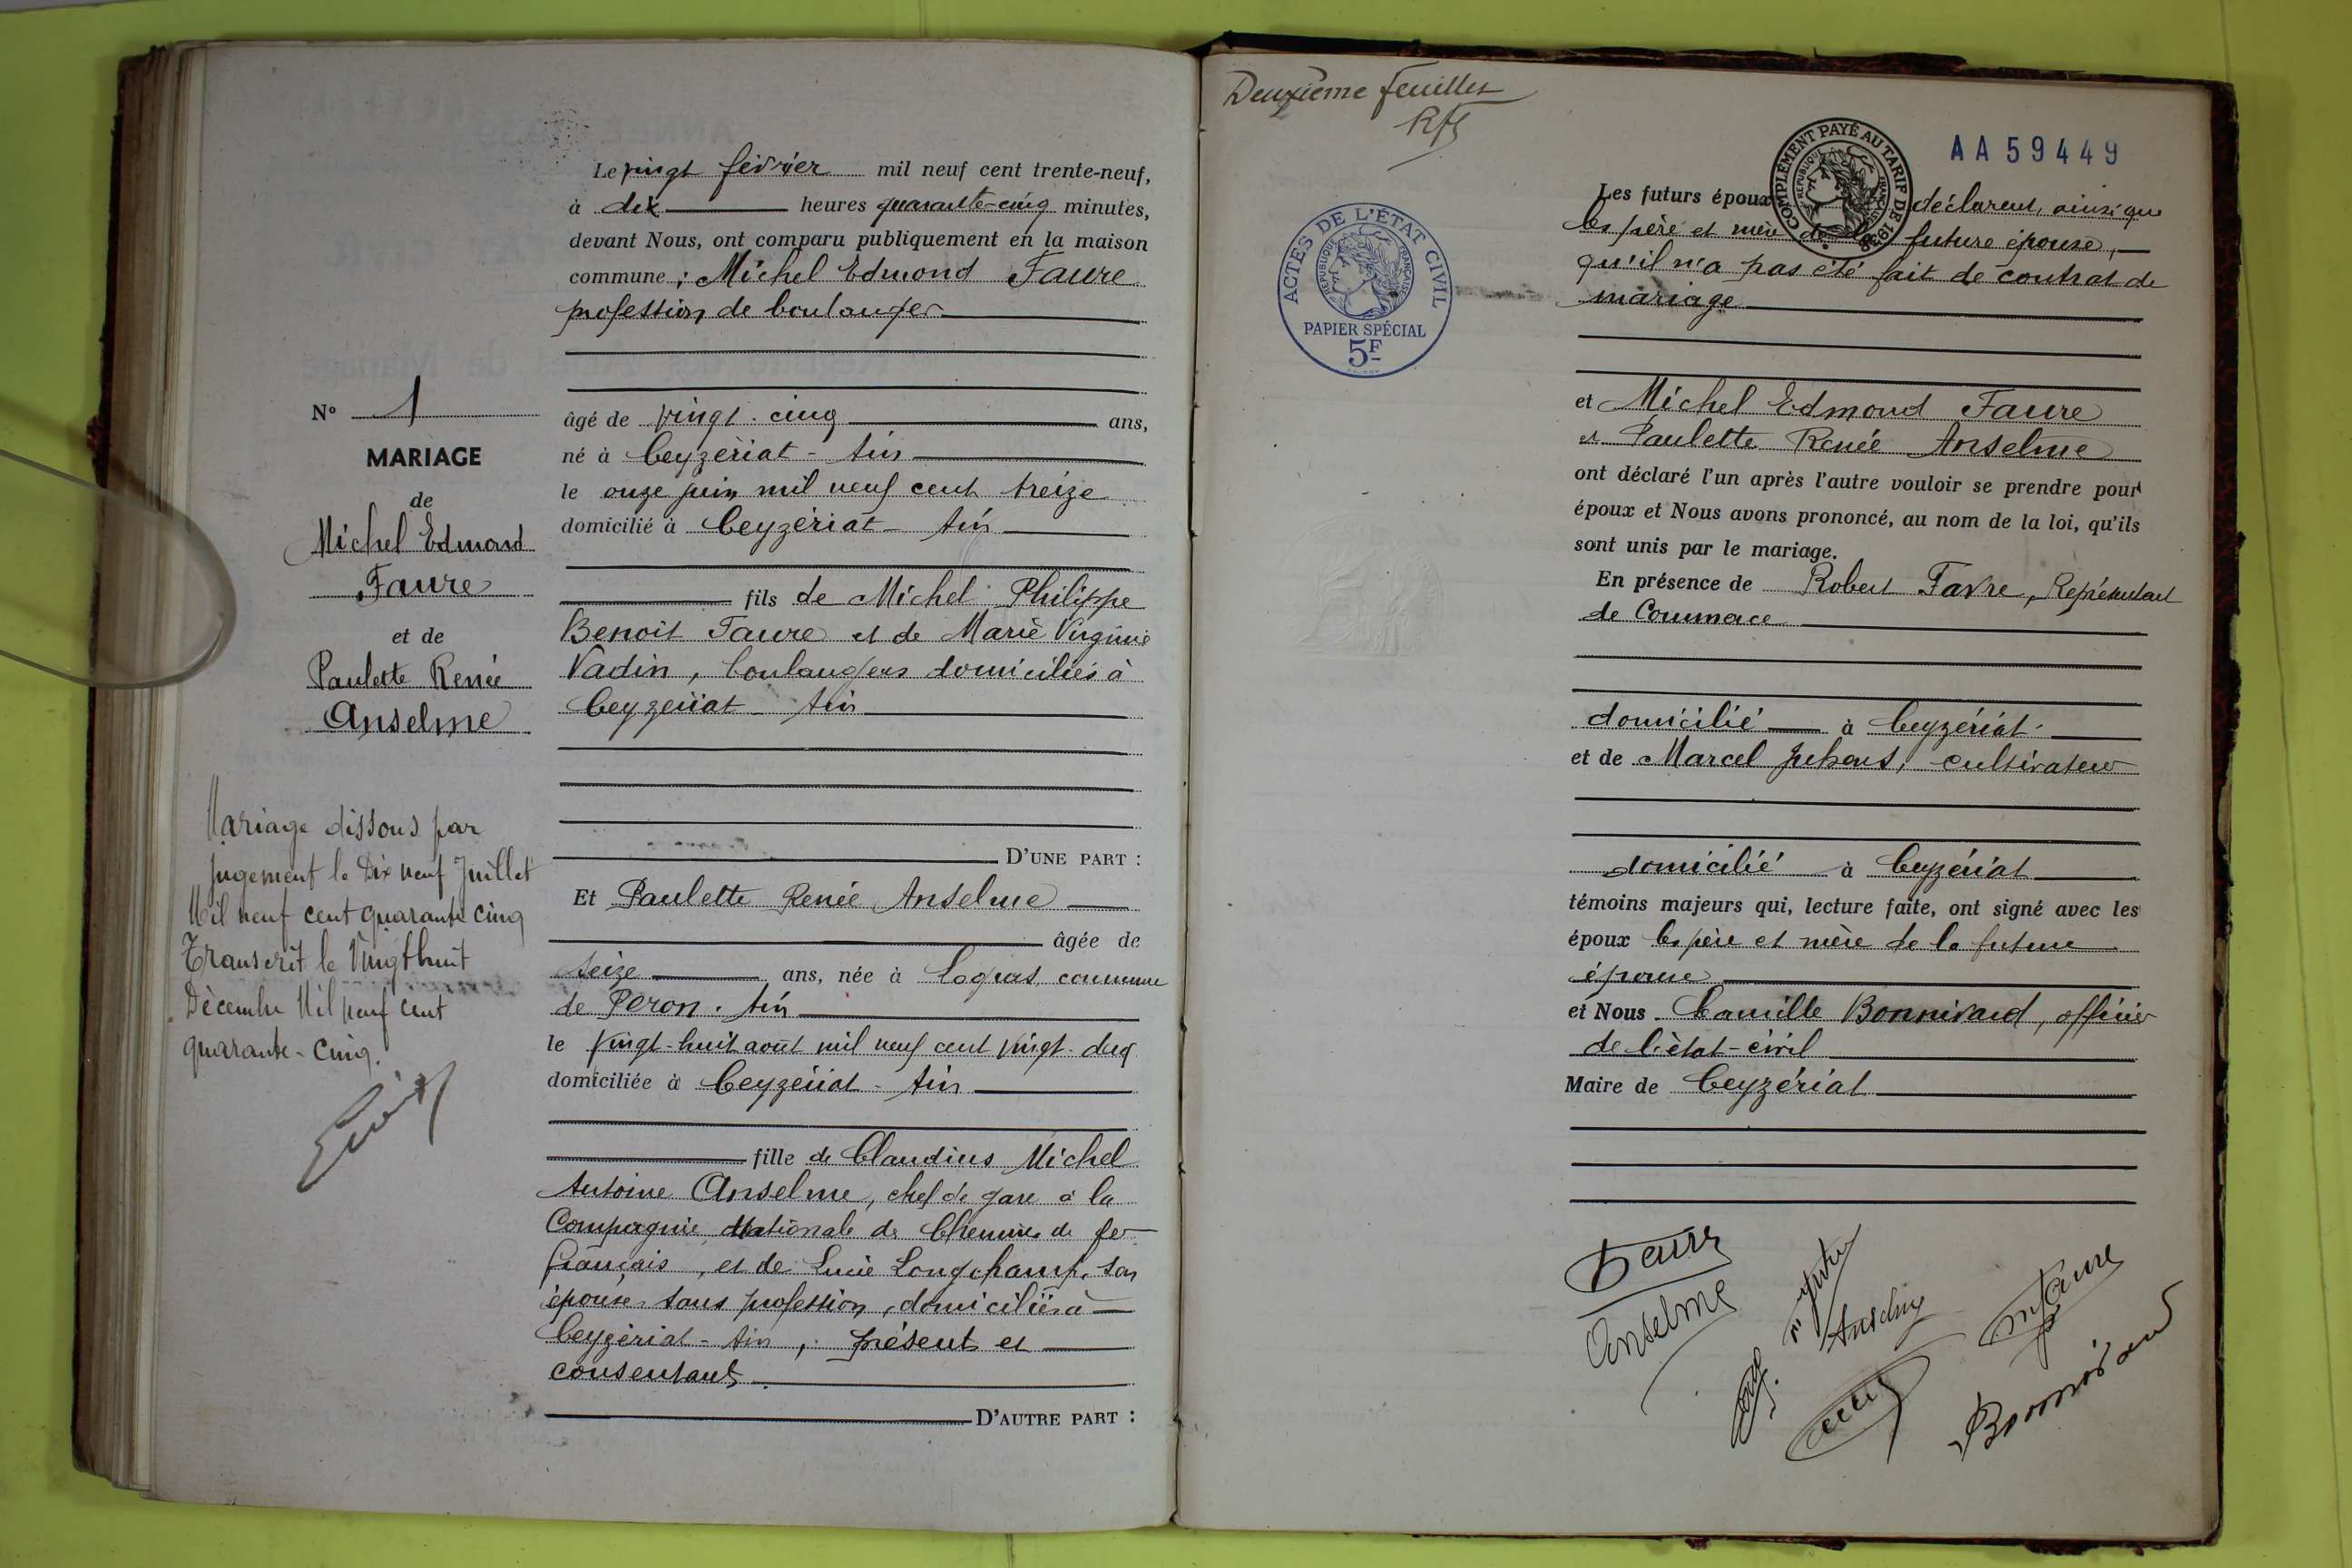 Le vingt février mil neuf cent trente-neuf,
à dix heures quarante-cinq minutes,
devant Nous, ont comparu publiquement en la maison
commune : Michel Edmond Faure
profession de boulanger
âgé de vingt-cinq ans,
né à Ceyzériat - Ain
le onze juin mil neuf cent treize
domicilié à Ceyzériat - Ain
fils de Michel Philippe
Benoit Faure et de Marie Virginie
Vadin, boulangers domiciliés à
Ceyzériat - Ain
D'UNE PART :
Et Paulette Renée Anselme
âgée de
seize ans, née à Logras, commune
de Peron - Ain
le vingt-huit août mil neuf cent vingt-deux
domiciliée à Ceyzériat - Ain
fille de Claudius Michel
Antoine Anselme, chef de gare à la
Compagnie Nationale de Chemins de fer
français, et de Lucie Longchamp, son
épouse, sans profession, domiciliés à
Ceyzériat - Ain, présents et
consentants
D'AUTRE PART :
N° 1
MARIAGE
de
Michel Edmond
Faure
et de
Paulette Renée
Anselme
Mariage dissous par
jugement le Dix neuf Juillet
Mil neuf cent quarante cinq
Transcrit le Vingt huit
Décembre Mil neuf cent
quarante-cinq.
Deuxième feuillet
AA59449
COMPLÉMENT PAYÉ AU TARIF DE 1938
RÉPUBLIQUE FRANÇAISE
ACTES DE L'ÉTAT CIVIL
RÉPUBLIQUE FRANÇAISE
PAPIER SPÉCIAL
5F
Les futurs époux déclarent, ainsi que
les père et mère de la future épouse,
qu'il n'a pas été fait de contrat de
mariage
et Michel Edmond Faure
et Paulette Renée Anselme
ont déclaré l'un après l'autre vouloir se prendre pour
époux et Nous avons prononcé, au nom de la loi, qu'ils
sont unis par le mariage.
En présence de Robert Favre, Représentant
de Commerce
domicilié à Ceyzériat
et de Marcel , cultivateur
domicilié à Ceyzériat
témoins majeurs qui, lecture faite, ont signé avec les
époux les père et mère de la future
épouse
et Nous Camille Bonnivard, officier
de l'état-civil
Maire de Ceyzériat
Faure
Anselme
Anselme
Faure
Bonnivard